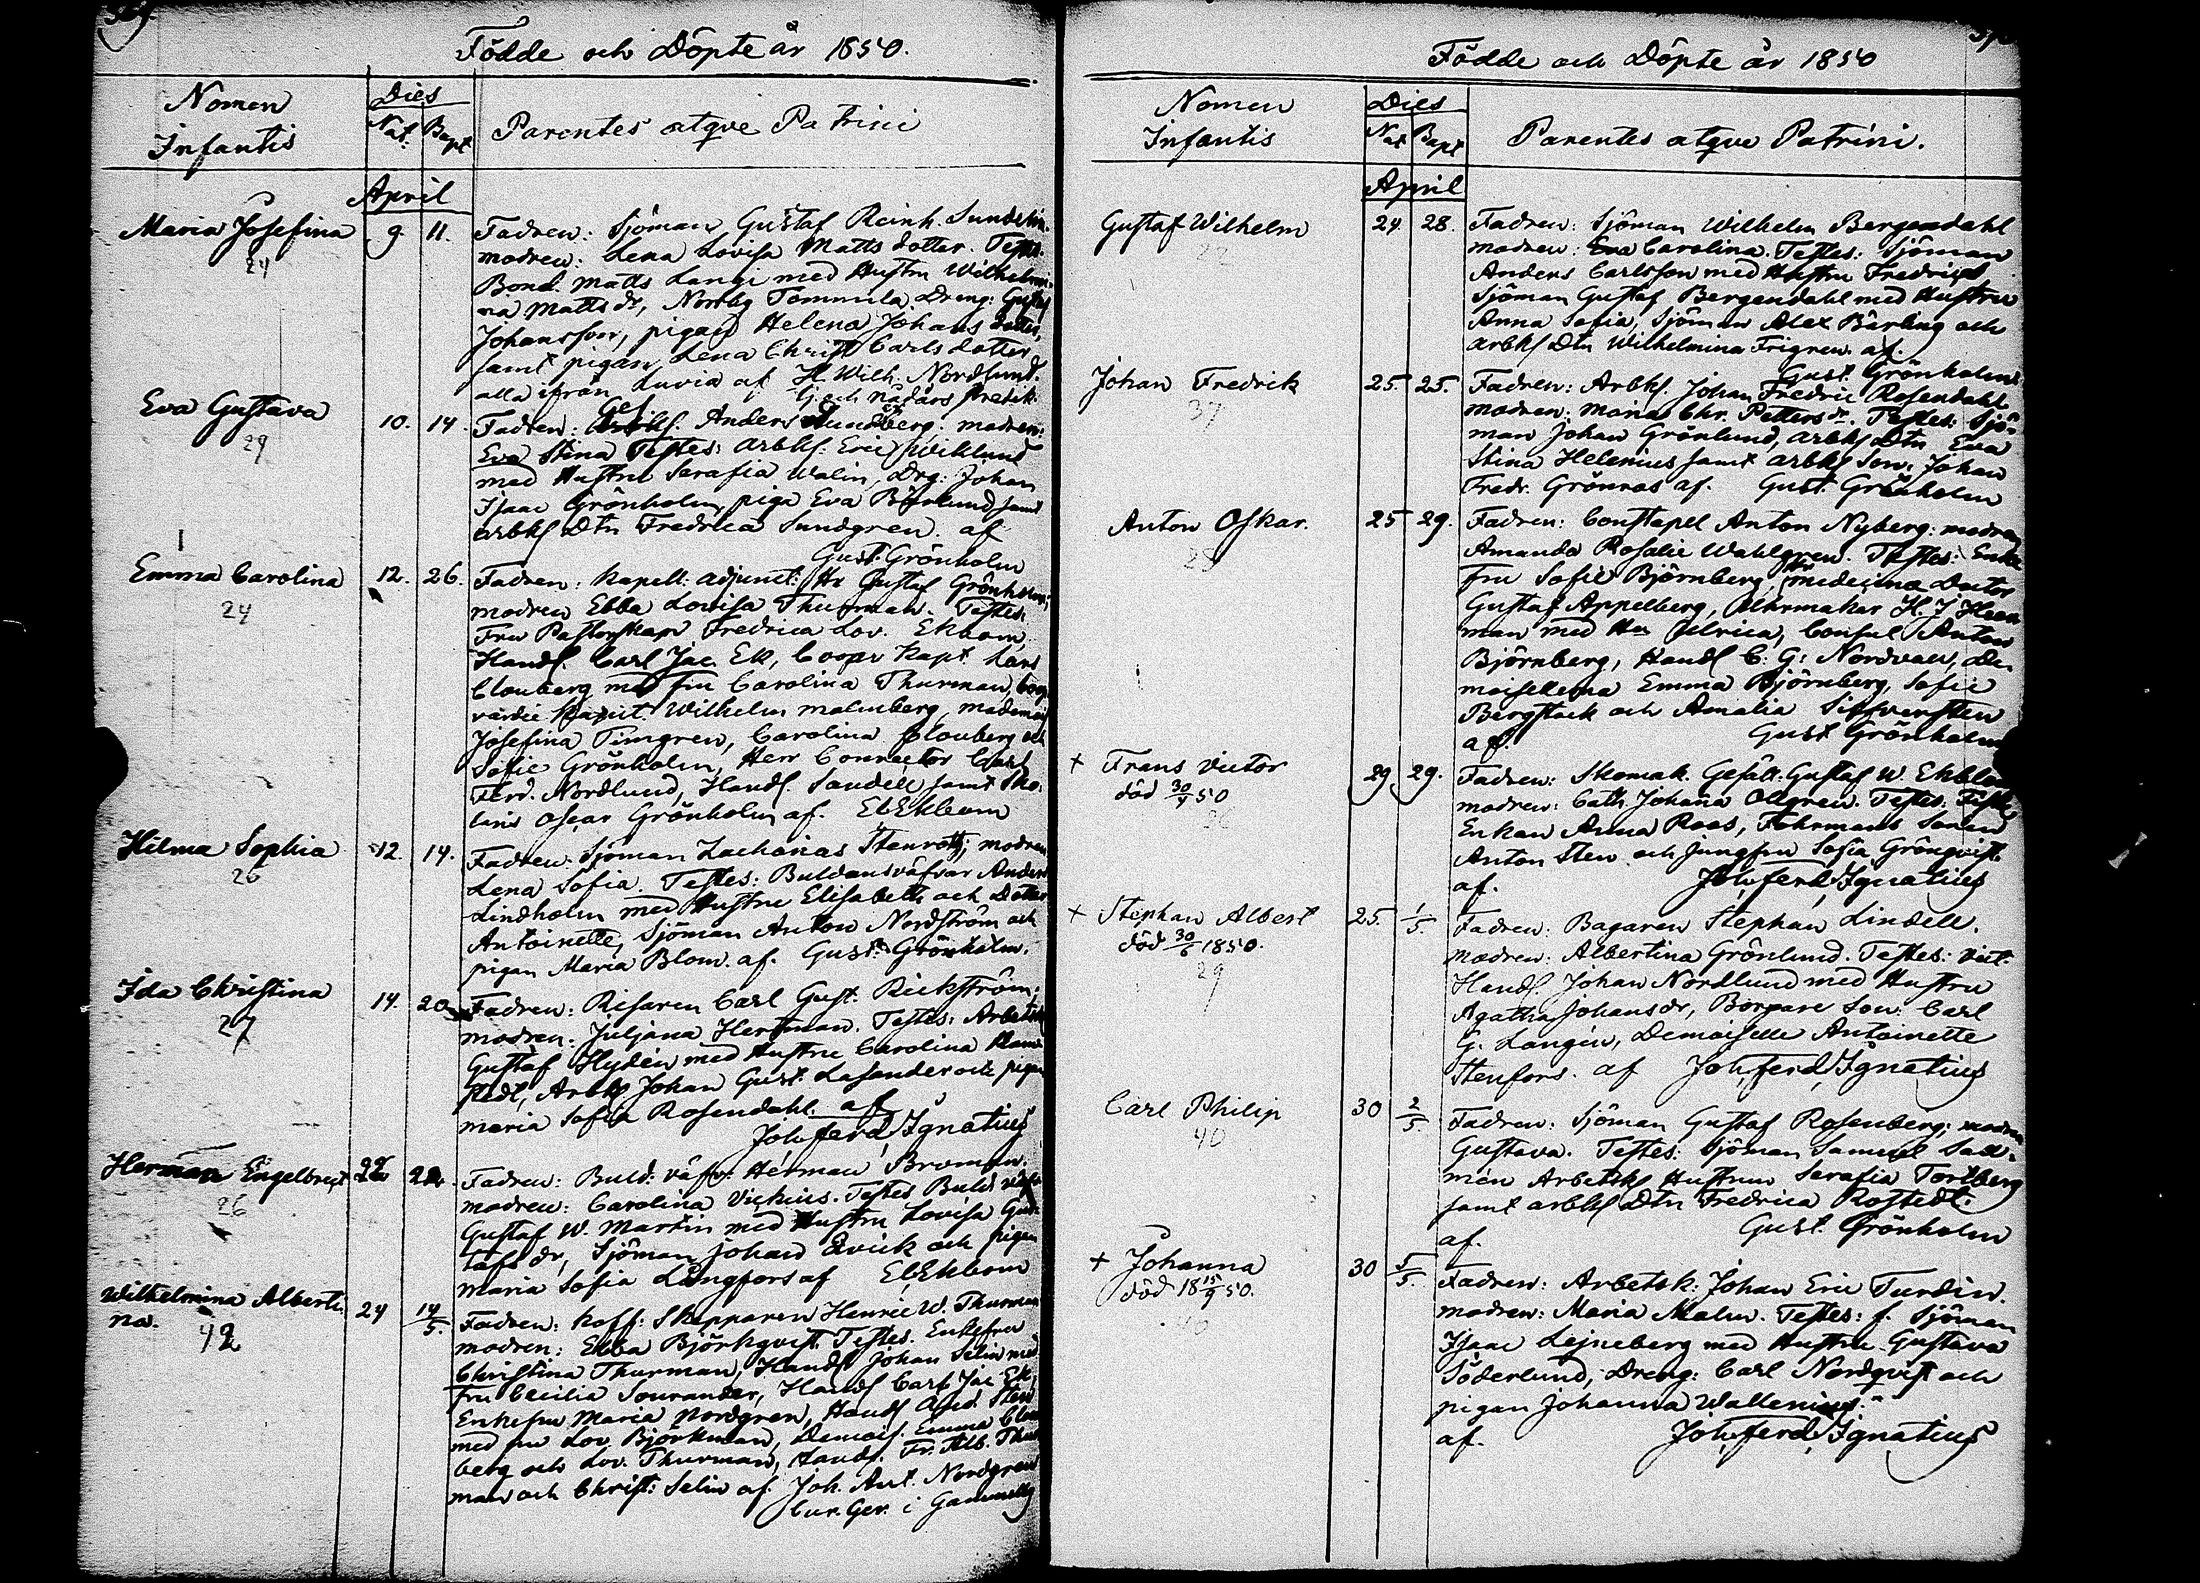 Födde och Döpte år 1850.
Nomen Infantis
Dies
Nat. Bapt
Parentes atqve Patrini
April
Maria Josefina
24
9. 11.
Fadren: Sjöman Gustaf Reinh.
modren: Lena Lovisa Matts dotter. Testes.
Bond. Matts Langi med Hustru Wilhelmi-
na Matts dr, Tommila Dreng: Gustaf
Johansson, pigan Helena Johans dotter,
samt pigan Lena Christ Carls dotter
alla ifrån Luvia af H. Wilh. Nordlund.
Eva Gustava
29
10. 14.
Fadren: Anders modren:
Eva Stina Testes: arbks: Eric Wiklund
med Hustru Serafia Walin, Drg: Johan
Isaac Grönholm, piga Eva Björlund, samt
arbks Dtn Fredrica Sundgren. af
Gust: Grönholm
Emma Carolina
24
12. 26.
Fadren: Kapell: adjunct: Hr Gustaf Grönholm;
modren Ebba Lovisa Thurman. Testes:
Fru Pastorskan Fredrica Lov. Ekbom,
Handl. Carl Jac Ek, Coopv Kapt Lars
Clouberg med fru Carolina Thurman, Coop
värdie Kapit. Wilhelm Malmberg, mademois
Josefina Timgren, Carolina Clouberg och
Sofie Grönholm, Herr Conrector Carl
Ferd. Nordlund, Handl. Sandell samt Sko-
laris Oscar Grönholm af. El Ekbom
Hilma Sophia
26
12. 14.
Fadren: Sjöman Zacharias Stenroth; modren
Lena Sofia. Testes: Buldansväfvar Anders
Lindholm med Hustru Elisabeth och Dotter
Antoinette, Sjöman Anton Nordström och
pigan Maria Blom. af. Gust: Grönholm.
Ida Christina
27
14. 20.
Fadren: Risaren Carl Gust. Rickström:
modren: Juljana Hertman. Testes: Arbetsk
Gustaf Hydén med Hustru Carolina
Arbks Johan Gust. Lasander och pigan
maria Sofia Rosendahl. af
Joh. ferd. Ignatius
Herman Engelbrect
26
22. 22.
Fadren: Buld: väfv: Herman Broman.
modren: Carolina Vickius. Testes Buld. väfv
Gustaf W. Martin med Hustru Lovisa Gus-
tafs dr, Sjöman Johan Qvick och pigan
Maria Sofia Långfors af El Ekbom
Wilhelmina Alberti-
na.
42
24 14/5.
Fadren: Koff: Skepparen Henric W. Thurman
modren: Ebba Björkqvist. Testes. Enkefru
Christina Thurman, Handl Johan Selin med
Fru Cecilia Sourander, Handl Carl Jac Ek,
Enkefru Maria Nordgren, Handl And. Sten
med fru Lov. Björkman, Demois. Emma Clou-
berg och Lov. Thurman, Handl. Fr. Alb. Thur
man och Christ: Selin af Joh. Ant. Nordgren
Cur. Ger. i Gammelby
Födde och Döpte år 1850
Nomen Infantis
Dies
Nat Bapt
Parentes atqve Patrini.
April
Gustaf Wilhelm
24 28.
Fadren: Sjöman Wilhelm Bergendahl
modren: Eva Carolina. Testes: Sjöman
Anders Carlsson med Hustru Fredrica
Sjöman Gustaf Bergendahl med Hustru
Anna Sofia, Sjöman Alex Bärling och
arbks Dtn Wilhelmina Frigren. af.
Gust. Grönholm
Johan Fredrik
37
25. 25.
Fadren: Arbks. Johan Fredric Rosendahl
modren: Maria Chr. Petters dr. Testes: Sjö-
man Johan Grönlund, arbks Dtn Eva
Stina Helenius samt arbks Son. Johan
Fredr. Grönros af. Gust. Grönholm
Anton Oskar.
25 29.
Fadren: Constapel Anton Nyberg: modren
Amanda Rosalie Wahlgren. Testes: Enke
fru Sofie Björnberg, medecinæ Doctor
Gustaf Appelberg, Uhrmakar H. J. Hean
man med Ulrica, Consul Anton
Björnberg, Handl C. G. Nordvall, De-
moisellerna Emma Björnberg, Sofie
Bergstock och Amalia
af. Gust Grönholm
+ Frans Victor
död 30/4 50
29 29.
Fadren: Skomak. Gesäll: Gustaf W. Ekblom
modren: Cath. Johana Ollgren. Testes:
Enkan Anna Roos, Fohrmans Sonen
Anton Sten och Jungfru Sofia Gröngvist
af. Joh. ferd. Ignatius
+ Stephan Albert
död 30/6 1850.
29
25. 1/5.
Fadren: Bagaren Stephan Lindell.
modren: Albertina Grönlund. Testes: Vict.
Handl. Johan Nordlund med Hustru
Agatha Johans dr, Borgare Son: Carl
G. Langén, Demoiselle Antoinette
Stenfors. af Joh. ferd. Ignatius
Carl Philip
40
30 2/5.
Fadren: Sjöman Gustaf Rosenberg; modren
Gustava. Testes: Sjöman Samuel Sall-
mén Arbetsks Hustrun Serafia Tortberg
samt arbks Dtn Fredrica Rostedt.
af. Gust. Grönholm
+ Johanna
död 18 15/9 50.
40
30 5/5.
Fadren: Arbetsk: Johan Eric Turdin.
modren: Maria Malm. Testes: f. Sjöman
Isaac Lejneberg med Hustru Gustava
Söderlund, Dreng: Carl Nordqvist och
pigan Johanna Wallenius.
af. Joh. ferd. Ignatius